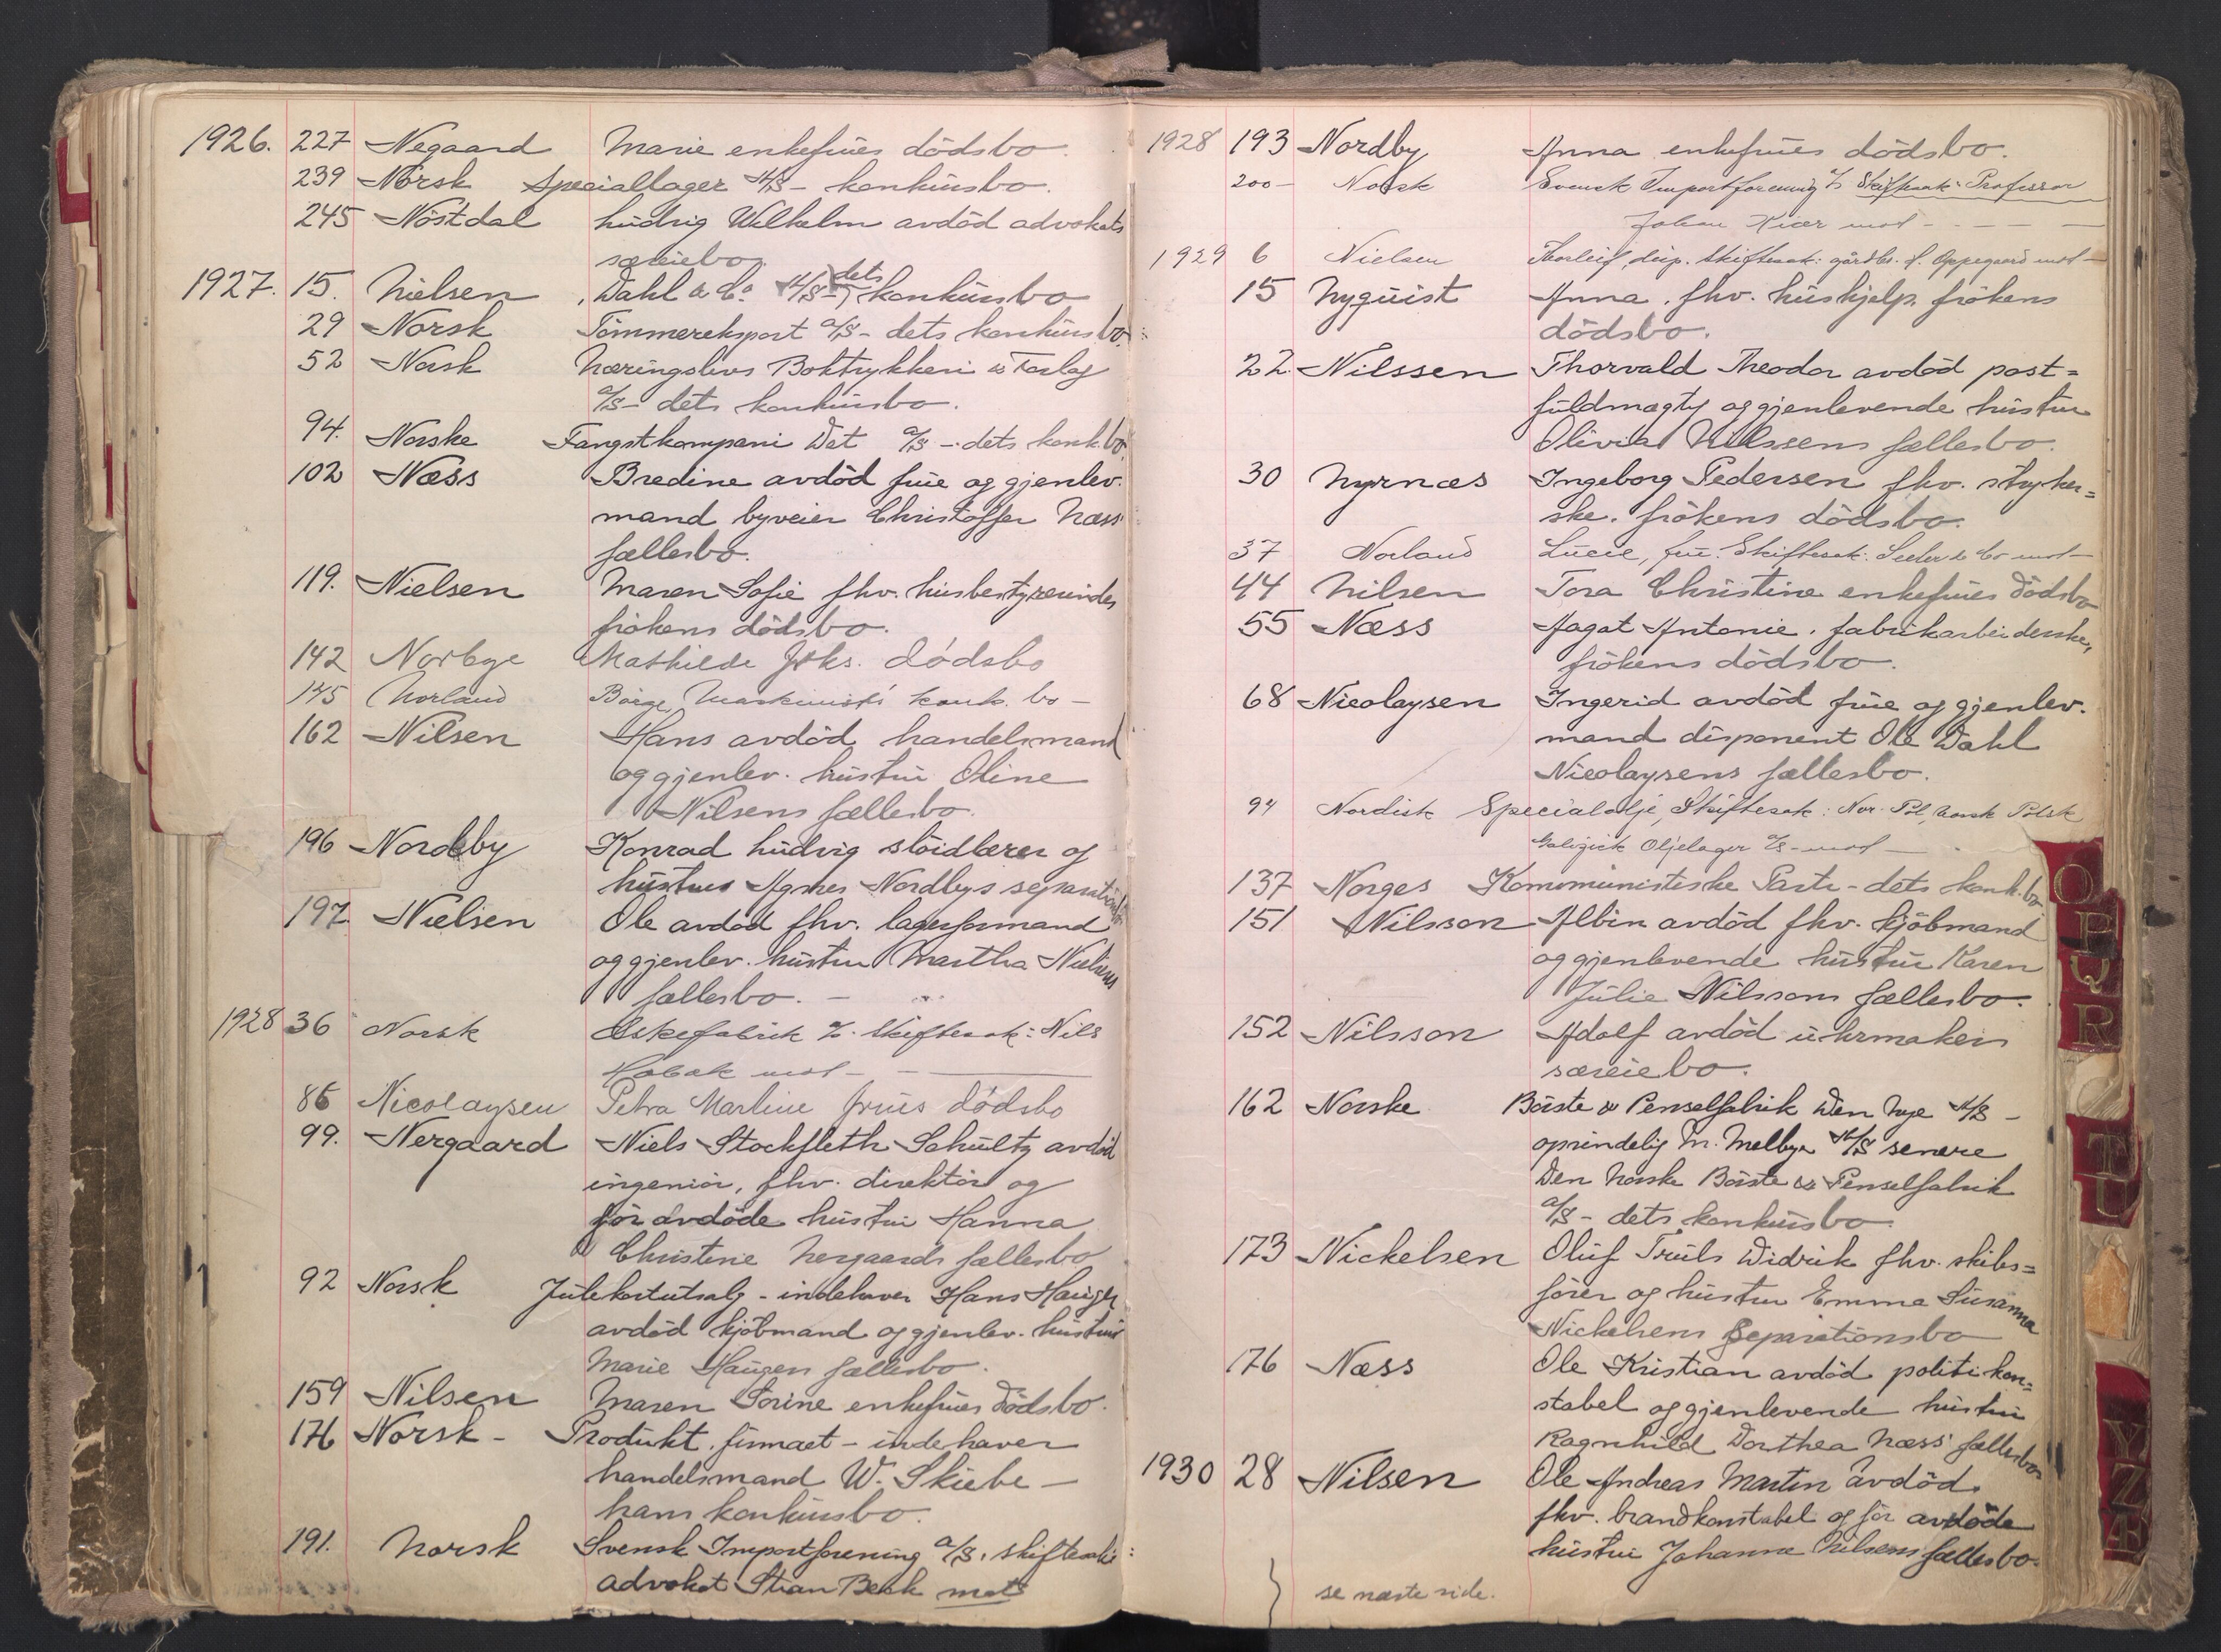 1926. 227 Negaard Marie enkefrues dödsbo.
239 Norsk Speciallager A/S - konkursbo.
245 Nöstdal Ludvig Wilhelm avdöd advokats
særeiebo.
1927. 15. Nielsen, Dahl & Co A/S - dets konkursbo
29 Norsk Tömmereksport A/S - dets konkursbo
52 Norsk Næringslivs Boktrykkeri & Forlag
A/S - dets konkursbo.
94. Norske Fangstkompani Det A/S - dets konk.bo
102 Næss Bredine avdöd frue og gjenlev.
mand byveier Christoffer Næss'
fællesbo.
119. Nielsen Maren Sofie fhv. husbestyrerindes
frökens dödsbo.
142 Norbye Mathilde frks. dödsbo
145 Norland Börge, Maskinists' konk. bo -
162 Nilsen Hans avdöd handelsmand
og gjenlev. hustru Oline
Nilsens fællesbo.
196 Nordby Konrad Ludvig slöidlærer og
hustrus Agnes Nordbys separationsbo
197 Nielsen Ole avdöd fhv. lagerformand
og gjenlev. hustru Martha Nielsens
fællesbo. -
1928 36 Norsk Eskefabrik A/S. Skiftesak: Nils
Hobæk mot -
86 Nicolaysen Petra Martine frues dödsbo
99. Nergaard Niels Stockfleth Schultz avdöd
ingeniör, fhv. direktör og
för avdöde hustru Hanna
Christine Nergaards fællesbo
92 Norsk Julekortutsalg - indehaver Hans Haugen
avdöd kjöbmand og gjenlev. hustru
Marie Haugens fællesbo.
159 Nilsen Maren Sorine enkefrues dödsbo.
176 Norsk - Produkt. firmaet - indehaver
handelsmand W. Skiebe -
hans konkursbo.
191. Norsk Svensk Importforening A/S. skiftesak:
advokat Stian Bech mot
1928 193 Nordby Anna enkefrues dödsbo.
200 - Norsk Svensk Importforening A/S Skiftesak: Professor
Johan Kiær mot - - - -
1929 6 Nielsen Thorleif, disp. Skiftesak: gårdbr. Oppegaard mot -
15 Nyquist Anna, fhv. hushjelp, frökens
dödsbo.
22. Nilssen Thorvald Theodor avdöd post=
fuldmægtig og gjenlevende hustru
Olivia Nilssens fællesbo.
30 Nyrnæs Ingeborg Pedersen fhv. stryker=
ske. frökens dödsbo.
37 Norland Lucie, frue. Skiftesak: & Co mot -
44 Nilsen Tora Christine enkefrues dödsbo
55 Næss Aagot Antonie, fabrikarbeiderske,
frökens dödsbo.
68 Nicolaysen Ingerid avdöd frue og gjenlev.
mand disponent Ole Dahl
Nicolaysens fællesbo.
94 Nordisk Specialolje, Skiftesak: Nor-Pol, Norsk Polsk
Galizisk Oljelager A/S - mot -
137 Norges Kommunistiske Parti - dets konk.bo
151 Nilsson Albin avdöd fhv. kjöbmand
og gjenlevende hustru Karen
Julie Nilssons fællesbo.
152 Nilsson Adolf avdöd uhrmakers
særeiebo.
162 Norske Börste & Penselfabrik Den Nye A/S -
oprindelig M. Melbye A/S senere
Den Norske Börste & Penselfabrik
A/S - dets konkursbo
173 Nickelsen Oluf Truls Didrik fhv. skibs=
förer og hustru Emma Susanna
Nickelsens Separationsbo
176 Næss Ole Kristian avdöd politikon=
stabel og gjenlevende hustru
Ragnhild Dorthea Næss' fællesbo
1930 28 Nilsen Ole Andreas Martin avdöd
fhv. brandkonstabel og för avdöde
hustru Johanne Nilsens fællesbo.
se næste side.
O
P
Q
R
T
U
Y
Z
Æ